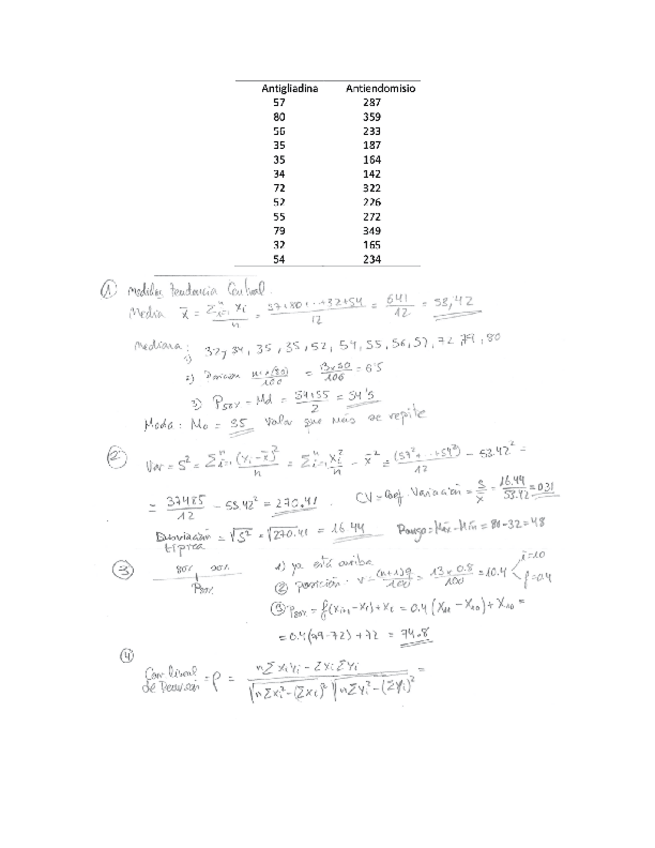 Antigliadina Antiendomisio
57 287
80 359
56 233
35 187
35 164
34 142
72 322
52 226
55 272
79 349
32 165
54 234
① Medidas tendencia Central.
Media x̄ = Σⁿᵢ₌₁ xᵢ / n = 57+80+···+32+54 / 12 = 641 / 12 = 53,42
Mediana: 1) 32, 34, 35, 35, 52, 54, 55, 56, 57, 72 79, 80
2) Posición = 13x50 / 100 = 6'5
3) P₅₀% - Md = 54+55 / 2 = 54'5
Moda: Mo = 35 valor que más se repite
② Var = S² = Σⁿᵢ₌₁ (xᵢ - x̄)² / n = Σⁿᵢ₌₁ xᵢ² / n - x̄² = (57²+···+54²) / 12 - 53.42² =
= 37485 / 12 - 53.42² = 270.41 CV = Coef. Variación = S / x̄ = 16.44 / 53.42 = 0.31
Desviación típica = √S² = √270.41 = 16.44 Rango = Máx - Mín = 80-32 = 48
③ 80% 20% 1) ya está arriba
P₈₀% ② posición · v = (n+1)q / 100 = 13 × 0.8 / 100 = 10.4 i=10 f=0.4
③ P₈₀% = f(xᵢ₊₁ - xᵢ) + xᵢ = 0.4 (X₁₁ - X₁₀) + X₁₀ =
= 0.4 (79-72) + 72 = 74.8
④
Corr lineal de Pearson = ρ = nΣxᵢyᵢ - ΣxᵢΣyᵢ / √nΣxᵢ² - (Σxᵢ)² √nΣyᵢ² - (Σyᵢ)² =